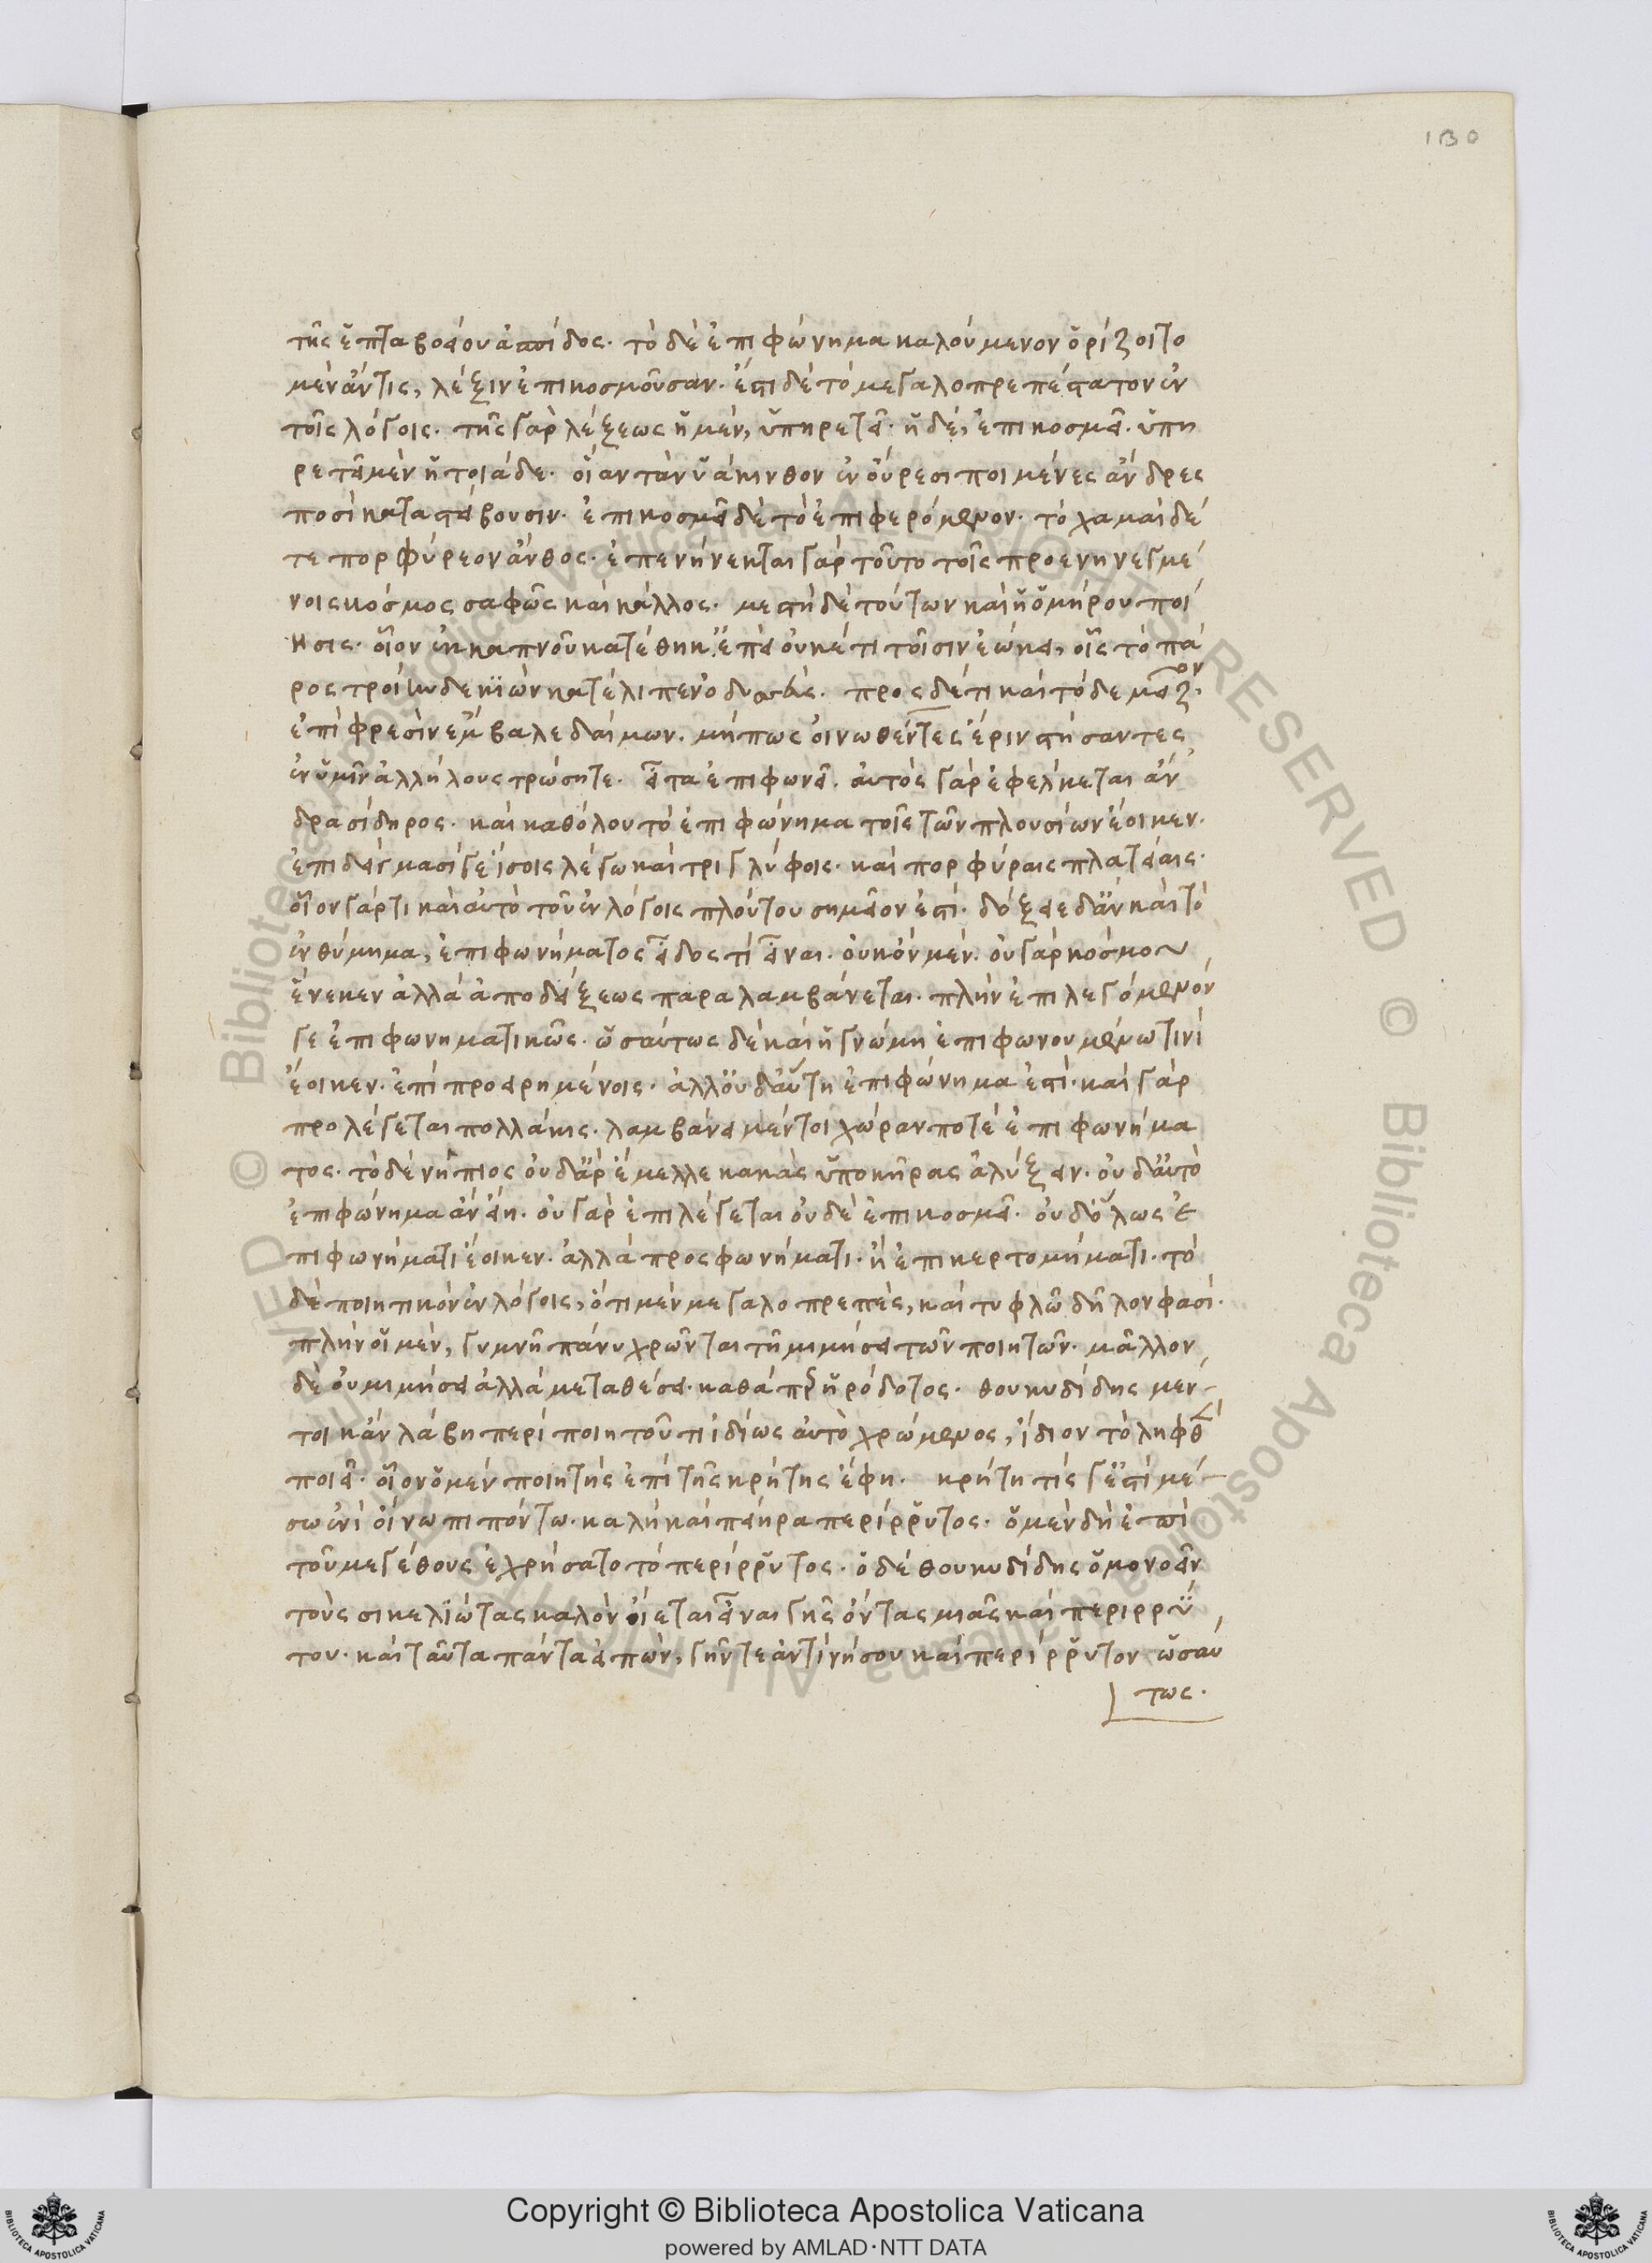 130
τῆς ἑπταβοείου ἀσπίδος. τὸ δὲ ἐπιφώνημα καλούμενον ὁρίζοιτο
μὲν ἄντις, λέξιν ἐπικοσμοῦσαν. ἔστι δὲ τὸ μεγαλοπρεπέστατον ἐν
τοῖς λόγοις. τῆς γὰρ λέξεως ἡ μὲν, ὑπηρετεῖ. ἡ δὲ, ἐπικοσμεῖ. ὑπη
ρετεῖ μὲν ἡ τοιάδε. οἵαν τὰν ὑάκινθον ἐν οὔρεσι ποιμένες ἄνδρες
ποσὶ καταστείβουσιν. ἐπικοσμεῖ δὲ τὸ ἐπιφερόμενον. τὸ χαμαὶ δέ
τε πορφύρεον ἄνθος. ἐπενήνεκται γὰρ τοῦτο τοῖς προενηνεγμέ
νοις κόσμος σαφῶς καὶ κάλλος. μεστὴ δὲ τούτων καὶ ἡ ὁμήρου ποί
ησις. οἷον ἐκ καπνοῦ κατέθηκ' ἐπεὶ οὐκέτι τοῖσιν ἐώκει, οἷς τὸ πά
ρος τροίηνδε κιὼν κατέλιπεν ὀδυσσεύς. προς δέ τι καὶ τόδε μεῖζον.
ἐπὶ φρεσὶν ἔμβαλε δαίμων. μήπως οἰνωθέντες ἔριν στήσαντες
ἐν ὑμῖν ἀλλήλους τρώσητε. εἶτα ἐπιφωνεῖ. αὐτὸς γὰρ ἐφέλκεται ἄν
δρα σίδηρος. καὶ καθόλου τὸ ἐπιφώνημα τοῖς τῶν πλουσίων ἔοικεν.
ἐπιδείγμασι γείσοις λέγω καὶ τριγλύφοις. καὶ πορφύραις πλατείαις.
οἷον γάρ τι καὶ αὐτὸ τοῦ ἐν λόγοις πλούτου σημεῖον ἐστί. δόξειε δ' ἂν καὶ τὸ
ἐνθύμημα, ἐπιφωνήματος εἶδός τι εἶναι. οὐκ ὂν μέν. οὐ γὰρ κόσμου
ἕνεκεν ἀλλὰ ἀποδείξεως παραλαμβάνεται. πλὴν ἐπιλεγόμενόν
γε ἐπιφωνηματικῶς. ὡσαύτως δὲ καὶ ἡ γνώμη ἐπιφωνουμένω τινὶ
ἔοικεν. ἐπὶ προειρημένοις. ἀλλ' οὐδ' αὕτη ἐπιφώνημα ἐστί. καὶ γὰρ
προλέγεται πολλάκις. λαμβάνει μέντοι χώραν ποτὲ ἐπιφωνήμα
τος. τὸ δὲ νήπιος οὐδ' ἄρ' ἔμελλε κακὰς ὑποκῆρας ἀλύξειν. οὐδ' αὐτὸ
ἐπιφώνημα ἂν εἴη. οὐ γὰρ ἐπιλέγεται οὐδὲ ἐπικοσμεῖ. οὐδ' ὅλως ἐ
πιφωνήματι ἔοικεν. ἀλλὰ προσφωνήματι. ἢ ἐπικερτομήματι. τὸ
δὲ ποιητικὸν ἐν λόγοις, ὅτι μὲν μεγαλοπρεπὲς, καὶ τυφλῶ δῆλον φασί.
πλὴν οἱ μὲν, γυμνῆ πάνυ χρῶνται τῆ μιμήσει τῶν ποιητῶν. μᾶλλον
δὲ οὐ μιμήσει ἀλλὰ μεταθέσει. καθάπερ ἡρόδοτος. θουκυδίδης μέν
τοι κἂν λάβη περὶ ποιητοῦ τι ἰδίως αὐτὸ χρώμενος, ἴδιον τὸ ληφθὲν
ποιεῖ. οἷον ὁ μὲν ποιητὴς ἐπὶ τῆς κρήτης ἔφη. κρήτη τίς γ' ἐστὶ μέ
σω ἐνὶ οἴνωπι πόντω. καλὴ καὶ πίειρα περίρρυτος. ὁ μὲν δὴ ἐπὶ
τοῦ μεγέθους ἐχρήσατο τὸ περίρρυτος. ὁ δὲ θουκυδίδης ὁμονοεῖν
τοὺς σικελιώτας καλὸν οἴεται εἶναι γῆς ὄντας μιᾶς καὶ περιρρύ
του. καὶ ταῦτα πάντα εἰπὼν, γῆν τε ἀντὶ νήσου καὶ περίρρυτον ὡσαύ
τως.
Copyright © Biblioteca Apostolica Vaticana
powered by AMLAD·NTT DATA